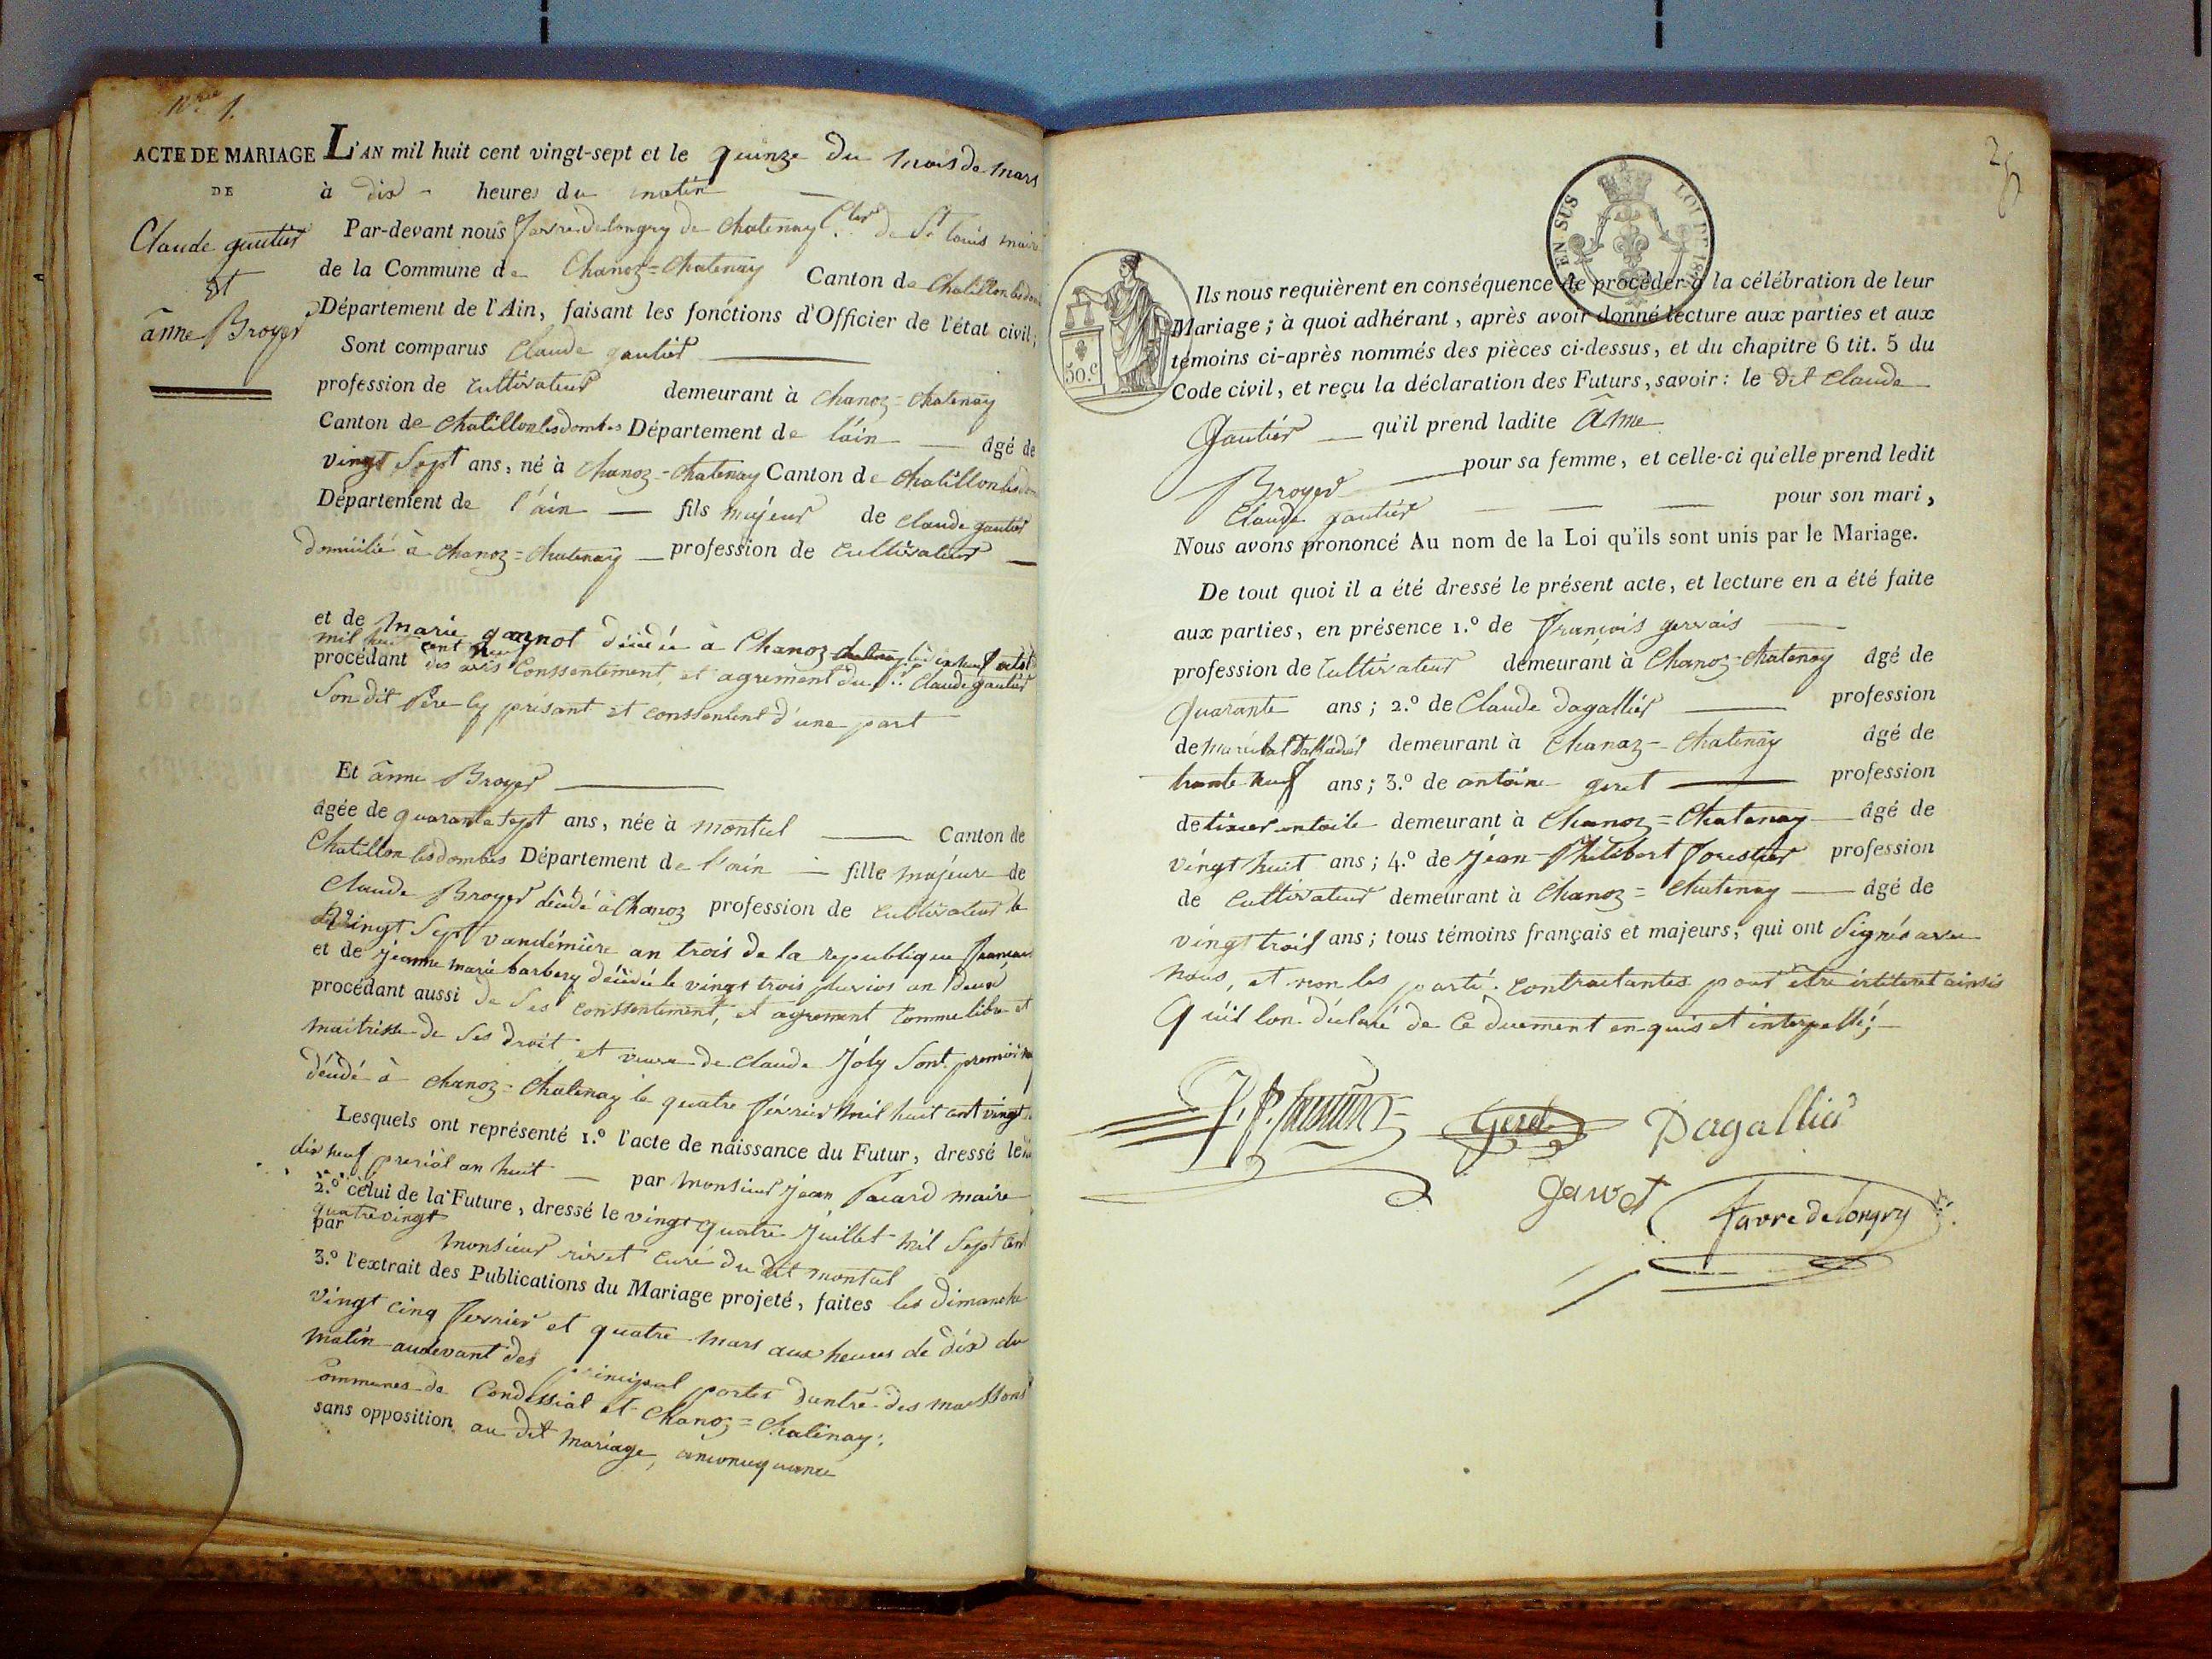 N.º 1.
ACTE DE MARIAGE
DE
Claude gautier
et
ânne Broyer
L'AN mil huit cent vingt-sept et le quinze du mois de mars
à dix heures du matin
Par-devant nous favre de longry de chatenay Cler de St louis maire
de la Commune de Chanoz=Chatenay Canton de Chatillon les dom
Département de l'Ain, faisant les fonctions d'Officier de l'état civil;
Sont comparus Claude gautier
profession de Cultivateur demeurant à Chanoz=chatenay
Canton de Chatillon les dombes Département de l'ain âgé de
vingt sept ans, né à Chanoz-chatenay Canton de chatillon les dom
Département de l'ain fils majeur de claude gautier
domicilié à chanoz=chatenay profession de Cultivateur
et de marie gannot décédée à Chanoz chatenay
mil huit cent neuf
procédant des avis Conssentement, et agrement du Claude gautier
Son dit Père icy présant et conssentent d'une part
Et ânne Broyer
âgée de quarante sept ans, née à montcel Canton de
Chatillon les dombes Département de l'ain fille majeure de
Claude Broyer décédé à Chanoz profession de Cultivateur le
vingt Sept vandémière an trois de la republique francaise
et de jeanne marie barbery décédé le vingt trois pluvios an deux
procédant aussi de Ses Conssentement, et agrement Comme libre et
maitresse de Ses droit, et veuve de Claude Joly Sont premier
décédé à chanoz=Chatenay le quatre février mil huit cent vingt
Lesquels ont représenté 1.º l'acte de naissance du Futur, dressé le
dix neuf prerial an huit par monsieur jean Pacard maire
2.º celui de la Future, dressé le vingt quatre Juillet mil Sept cent
quatrevingt
par monsieur rivet Curé du dit montcel
3.º l'extrait des Publications du Mariage projeté, faites les dimanche
vingt cinq fevrier et quatre mars aux heures de dix du
matin audevant des principal portes dantré des maissons
Communes de Condessiat et Chanoz=Chatenay;
sans opposition au dit mariage, anconcequance
EN SUS
LOI DE 181
50.c
Ils nous requièrent en conséquence de procéder à la célébration de leur
Mariage; à quoi adhérant, après avoir donné lecture aux parties et aux
témoins ci-après nommés des pièces ci-dessus, et du chapitre 6 tit. 5 du
Code civil, et reçu la déclaration des Futurs, savoir: le dit Claude
Gautier qu'il prend ladite ânne
Broyer pour sa femme, et celle-ci qu'elle prend ledit
Claude gautier pour son mari,
Nous avons prononcé Au nom de la Loi qu'ils sont unis par le Mariage.
De tout quoi il a été dressé le présent acte, et lecture en a été faite
aux parties, en présence 1.º de françois gervais
profession de Cultivateur demeurant à Chanoz-chatenay âgé de
Quarante ans; 2.º de Claude dagallier profession
de maréchal Tallandier demeurant à Chanaz-Chatenay âgé de
trante neuf ans; 3.º de antoine geret profession
de tixier en toile demeurant à Chanoz=Chatenay âgé de
vingt huit ans; 4.º de Jean Philibert forestier profession
de Cultivateur demeurant à Chanoz=Chatenay âgé de
vingt trois ans; tous témoins français et majeurs, qui ont Signés avec
nous, et non les parti contractantes pour être iréteret ainsis
Quil lon déclaré de Ce duement enquis et interpellé;
Geret Dagallier
favre de longry